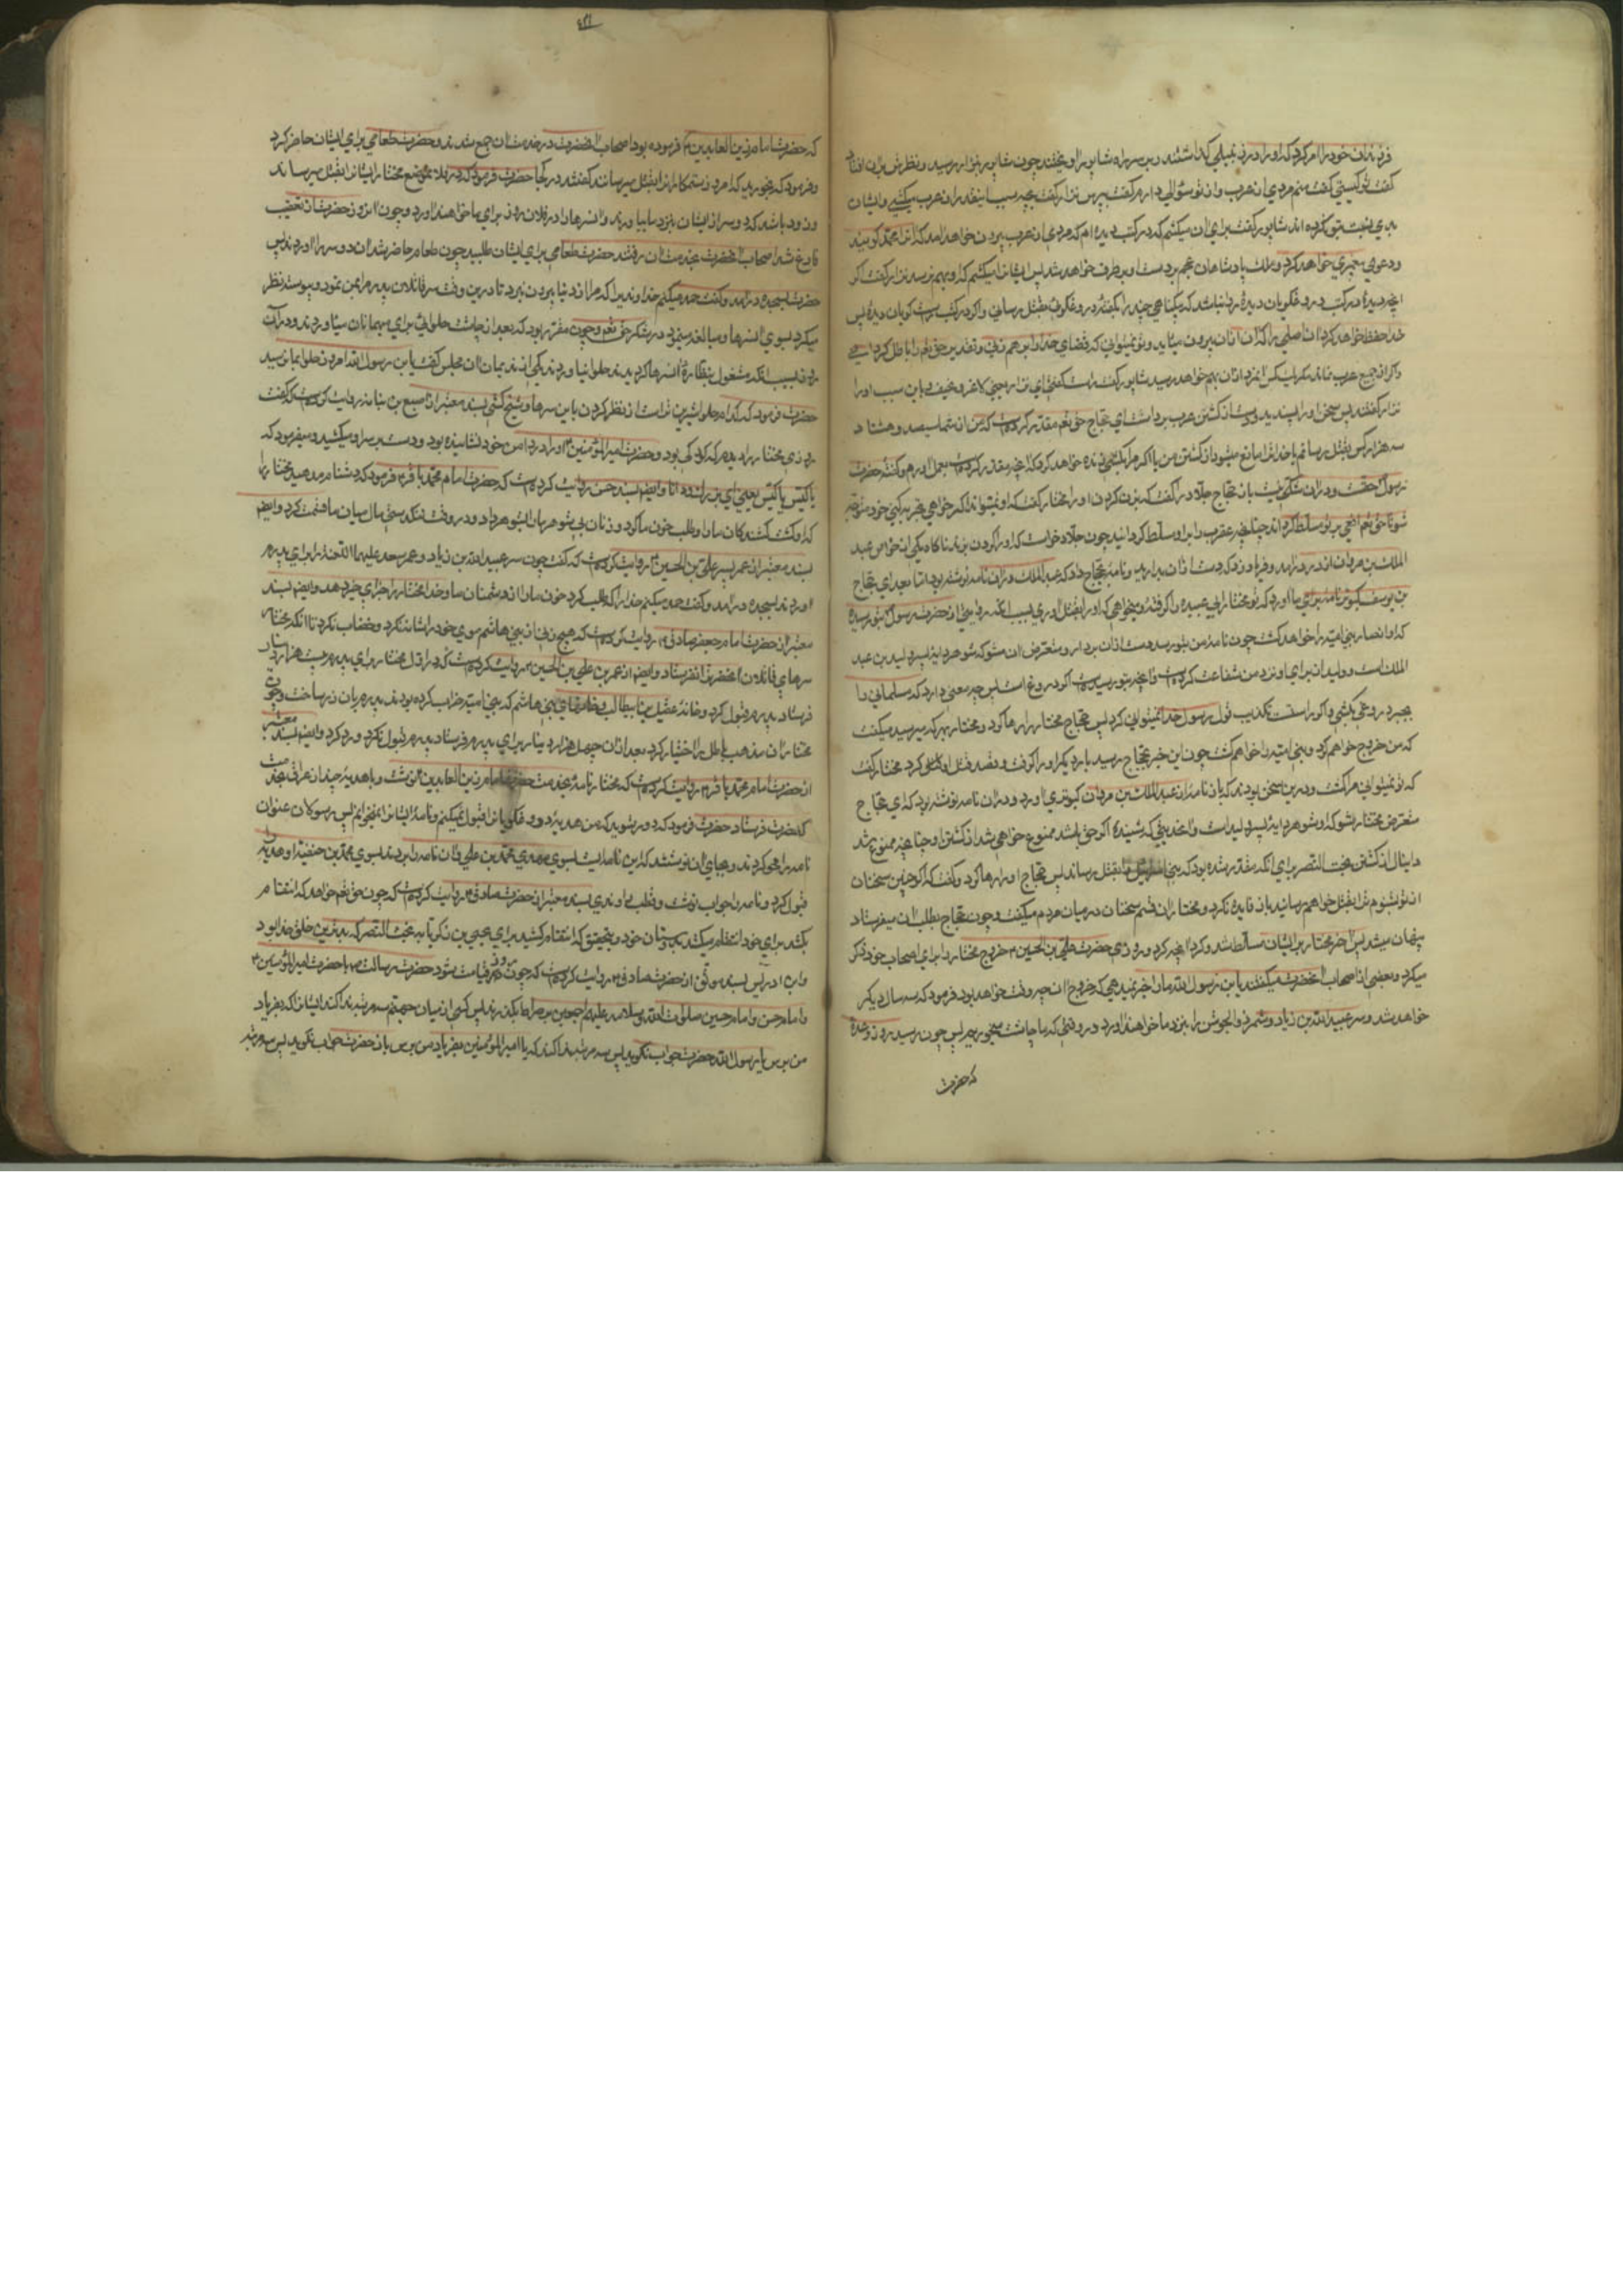 فرزندان خود را امر کرد که او را در زنبیلی گذاشتند و بر سر راه شاپور او یختند چون شاپور بنزار رسید و نظرش بر ان افتاد
گفت تو کیستی گفت منم مردی از عرب و از تو سؤالی دارم گفت بپرس نزار گفت بچه سبب اینقدر از عرب میکشی و ایشان
بدی نسبت بتو نکرده اند شاپور گفت برای ان میکشم که در کتب دیده ام که مردی از عرب بیرون خواهد امد که او را محمد گویند
و دعوی پیغمبری خواهد کرد و ملک پادشاهان عجم بر دست او بر طرف خواهد شد پس ایشان را میکشم که او بهم نرسد نزار گفت اگر
انچه دیده در کتب دروغ گویان دیده روا نباشد که بیگناهی چند را بگفته دروغ گوئی بقتل رسانی و اگر در کتب راست گویان دیده پس
خدا حفظ خواهد کرد ان اصلی را که ان از ان بیرون میآید و تو نمیتوانی که قضای خدا را بر هم زنی و تقدیر حق تعم را باطل کردانی
و اگر از جمیع عرب نماند مگر یک کس انمرد از ان بهم خواهد رسید شاپور گفت راست گفتی ای نزار یعنی لاغر و نحیف باین سبب او را
نزار گفتند پس سخن او را پسندید و دست از کشتن عرب برداشت ای حجاج حق تعم مقدر کرده است که من از شما سیصد و هشتاد
سه هزار کس بقتل رسانم یا خدا ترا مانع میشود از کشتن من یا اگر مرا بکشی زنده خواهد کرد که انچه مقدر کرده است بعمل اورم و گفته حضرت
رسول حقست و در ان شکی نیست باز حجاج جلاد را گفت که بزن گردن او را مختار گفت که او نمیتواند اگر خواهی تجربه کنی خود متوجه
شو تا حق تعم افعی بر تو مسلط گرداند چنانچه عقرب را بر او مسلط گردانید چون جلاد خواست که او را گردن بزند ناگاه یکی از خواص عبد
الملک بن مروان از در درامد و فریاد زد که دست از ان بدارید و نامه بحجاج داد که عبد الملک در ان نامه نوشته بود اما بعد ای حجاج
بن یوسف کبوتر نامه برای ما اورد که تو مختار ابی عبیده را گرفته و میخواهی که او را بقتل اوری بسبب انکه روایتی از حضرت رسول بتو رسیده
که او انصار بنی امیه را خواهد کشت چون نامه من بتو رسد دست از ان بردار و متعرض ان مشو که شوهر دایه پسر ولید بن عبد
الملک است و ولید از برای او نزد من شفاعت کرده است و انچه بتو رسیده است اگر دروغ است پس چه معنی دارد که مسلمانی را
بخبر دروغی بکشی و اگر راست است تکذیب قول رسول خدا نمیتوانی کرد پس حجاج مختار را رها کرد و مختار بهر که میرسید میگفت
که من خروج خواهم کرد و بنی امیه را خواهم کشت چون این خبر بحجاج رسید بار دیگر او را گرفت و قصد قتل او کرد مختار گفت
که تو نمیتوانی مرا کشت و درین سخن بودند که باز نامه از عبد الملک بن مروان کبوتری اورد و در ان نامه نوشته بود که ای حجاج
متعرض مختار مشو که او شوهر دایه پسر ولید است و اخدیثی که شنیده اگر حق باشد ممنوع خواهی شد از کشتن او چنانچه ممنوع شد
دانیال از کشتن بخت النصر برای انکه مقدر شده بود که بنی اسرائیل را بقتل رساند پس حجاج او را رها کرد و گفت که اگر چنین سخنان
از تو بشنوم ترا بقتل خواهم رسانید باز فایده نکرد و مختار از ان قسم سخنان در میان مردم میگفت و چون حجاج بطلب ان میفرستاد
پنهان میشد پس اخر مختار بر ایشان مسلط شد و کرد انچه کرد و روزی حضرت علی بن الحسین ع خروج مختار را برای اصحاب خود ذکر
میکرد و بعضی از اصحاب انحضرت میگفتند یا بن رسول الله ما را خبر نمیدهی که خروج ان چه وقت خواهد بود فرمود که سه سال دیگر
خواهد شد و سر عبید الله بن زیاد و شمر ذو الجوشن را بنزد ما خواهند اورد در وقتی که ما چاشت میخوریم پس چون رسید روز وعده
که حضرت
که حضرت امام زین العابدین ع فرموده بود اصحاب انحضرت در خدمت ان جمع شدند و حضرت طعامی برای ایشان حاضر کرد
و فرمود که بخورید که امروز ستمکاران را بقتل میرسانند گفتند در کجا حضرت فرمود که در فلان موضع مختار ایشان را بقتل میرساند
و زود باشد که دو سر از ایشان بنزد ما بیاورند و ان سرها را در فلان روز برای ما خواهند اورد و چون انروز حضرت از تعقیب
فارغ شد اصحاب انحضرت بخدمت ان رفتند حضرت طعامی برای ایشان طلبید چون طعام حاضر شد ان دو سر را اوردند پس
حضرت بسجده درامد و گفت حمد میکنم خداوندیرا که مرا از دنیا بیرون نبرد تا درین وقت سر قاتلان پدرم را بمن نمود و پیوسته نظر
میکرد بسوی ان سرها و مبالغه مینمود در شکر حق تعم و چون مقرر بود که بعد از چاشت حلوائی برای میهمانان میآوردند و در ان
روز بسبب انکه مشغول بنظاره ان سرها گردیدند حلوا نیاوردند یکی از ندیمان ان مجلس گفت یا بن رسول الله امروز حلوا بما نرسید
حضرت فرمود که کدام حلوا شیرین تر است از نظر کردن باین سرها و شیخ کشی بسند معتبر از اصبغ بن نباته روایت کرده است که گفت
روزی مختار را دیدم که کودکی بود و حضرت امیر المؤمنین ع او را در دامن خود نشانیده بود و دست بر سر او میکشید و میفرمود که
یا کیس یا کیس یعنی ای زیرک و دانا و ایضم بسند حسن روایت کرده است که حضرت امام محمد باقر ع فرمود که دشنام مدهید مختار را
که او کشت کشندگان ما را و طلب خون ما کرد و زنان بی شوهر ما را شوهر داد و در وقت تنگدستی مال میان ما قسمت کرد و ایضم
بسند معتبر از عمر پسر علی بن الحسین ع روایت کرده است که گفت چون سر عبید الله بن زیاد و عمر سعد علیهما اللعنه را برای پدرم
اوردند بسجده درامد و گفت حمد میکنم خدا را که طلب کرد خون ما را از دشمنان ما و خدا مختار را جزای خیر دهد و ایضم بسند
معتبر از حضرت امام جعفر صادق ع روایت کرده است که هیچ زنی از بنی هاشم موی خود را شانه نکرد و خضاب نکرد تا انکه مختار
سرهای قاتلان انحضرت را فرستاد و ایضم از عمر بن علی بن الحسین ع روایت کرده است که در اول مختار برای پدرم بیست هزار دینار
فرستاد پدرم قبول کرد و خانه عقیل بن ابیطالب و خانهای بنی هاشم که بنی امیه خراب کرده بودند پدرم بان زر ساخت و چون
مختار ان مذهب باطل را اختیار کرد بعد از ان چهل هزار دینار برای پدرم فرستاد پدرم قبول نکرد و رد کرد و ایضم بسند معتبر
از حضرت امام محمد باقر ع روایت کرده است که مختار نامه بخدمت حضرت امام زین العابدین نوشت و با هدیه چند از عراق بخدمت
انحضرت فرستاد حضرت فرمود که دور شوید که من هدیه دروغ گویان را قبول نمیکنم و نامه ایشان را نمیخوانم پس رسولان عنوان
نامه را محو کردند و بجای ان نوشتند که این نامه ایست بسوی مهدی محمد بن علی و ان نامه را بردند بسوی محمد بن حنفیه او هدیه را
قبول کرد و نامه را جواب نوشت و قطب راوندی بسند معتبر از حضرت صادق ع روایت کرده است که چون حق تعم خواهد که انتقام
بکشد برای خود انتقام میکشد بدوستان خود و بتحقیق که انتقام کشید برای یحیی بن زکریا به بخت النصر که بدترین خلق خدا بود
و ابن ادریس بسند موثق از حضرت صادق ع روایت کرده است که چون روز قیامت شود حضرت رسالت ص با حضرت امیر المؤمنین ع
و امام حسن و امام حسین صلوات الله و سلامه علیهم اجمعین بر صراط بگذرند پس کسی از میان جهنم سه مرتبه ندا کند ایشان را که بفریاد
من برس یا رسول الله حضرت جواب نگوید پس سه مرتبه ندا کند که یا امیر المؤمنین بفریاد من برس باز حضرت جواب نگوید پس سه مرتبه